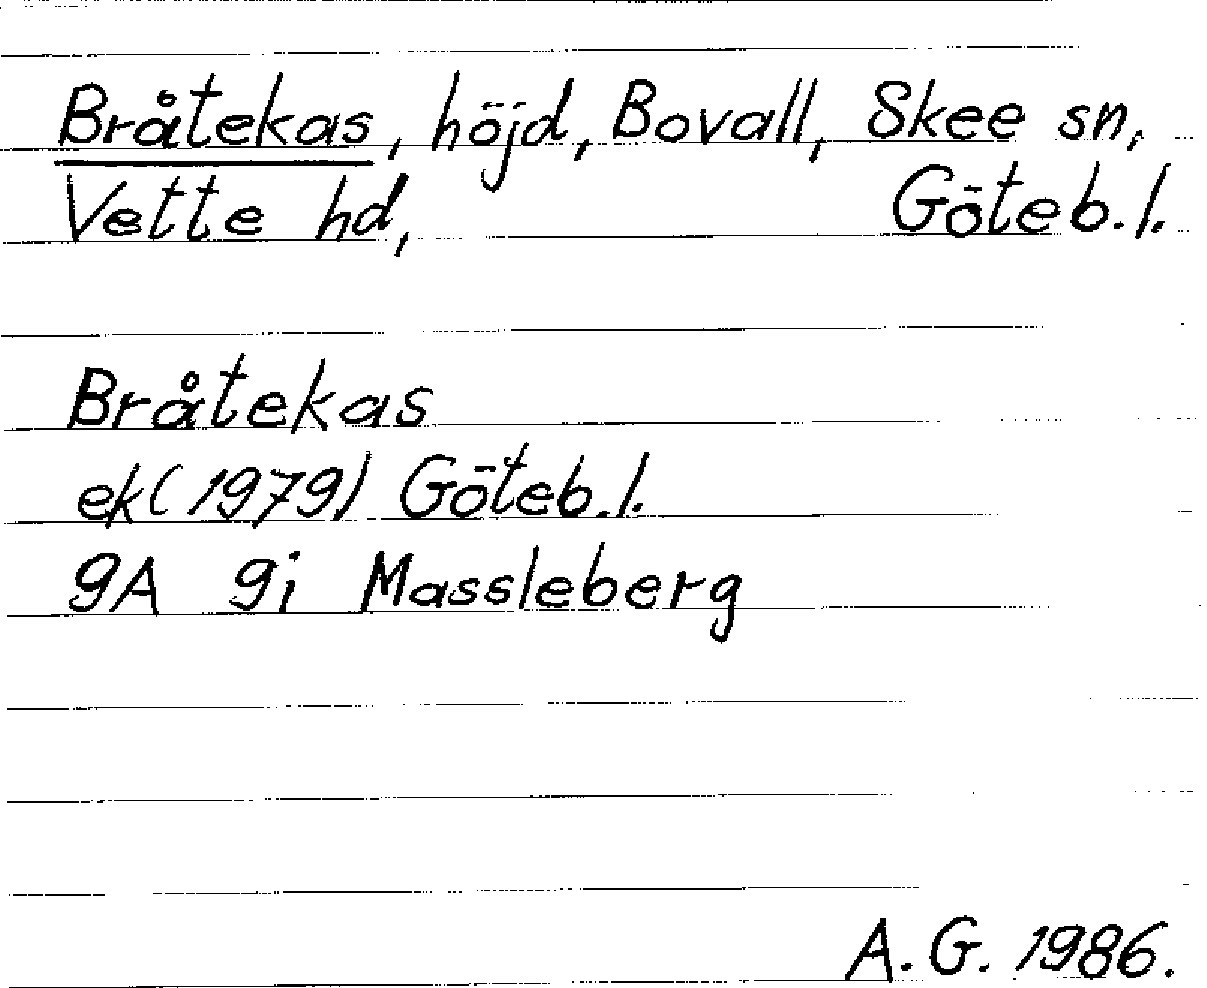 Bråtekas, höjd, Bovall, Skee sn,
Vette hd, Göteb. l.
Bråtekas
ek (1979) Göteb. l.
9A 9i Massleberg
A. G. 1986.